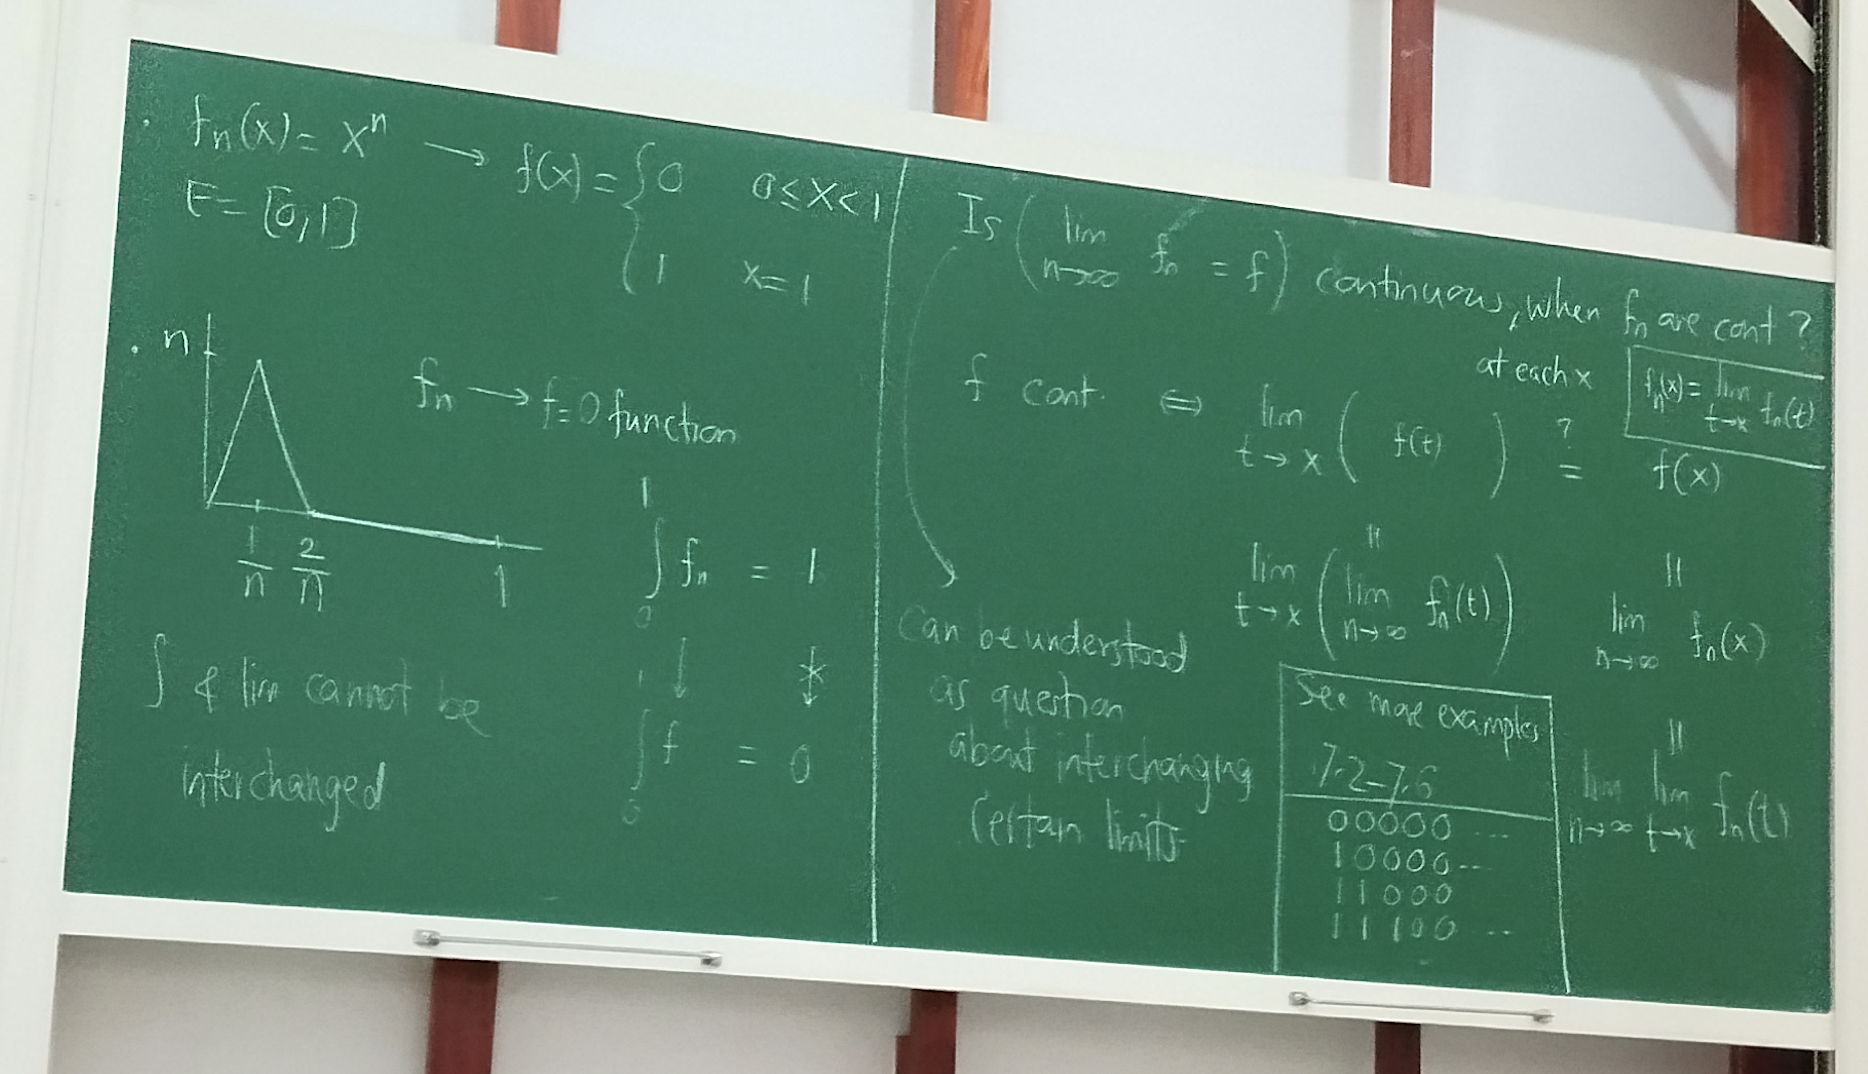 . fn(x) = x^n → f(x) = { 0 0≤x<1
E = [0,1] 1 x=1
. n
fn → f=0 function
1/n 2/n 1
∫₀¹ fn = 1
↓ ↓
∫₀¹ f = 0
∫ & lim cannot be
interchanged
Is ( lim n→∞ fn = f ) continuous, when fn are cont ?
at each x
fn(x) = lim t→x fn(t)
f cont. ⇔ lim t→x ( f(t) ) ?= f(x)
|| ||
lim t→x ( lim n→∞ fn(t) ) lim n→∞ fn(x)
||
lim n→∞ lim t→x fn(t)
Can be understood
as question
about interchanging
certain limits
See more examples
7.2-7.6
00000 ...
10000...
11000
11100 ...